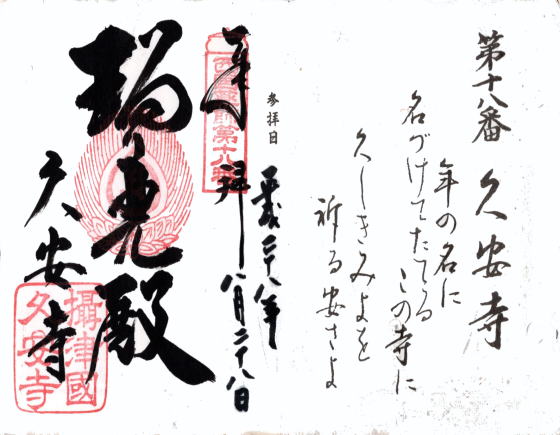 第十八番 久安寺
年の名に
名づけてたてる
この寺に
久しきみよを
祈る安さよ
参拝日
平成二十八年
八月二十八日
奉拝
瑠璃光殿
久安寺
攝津國
久安寺